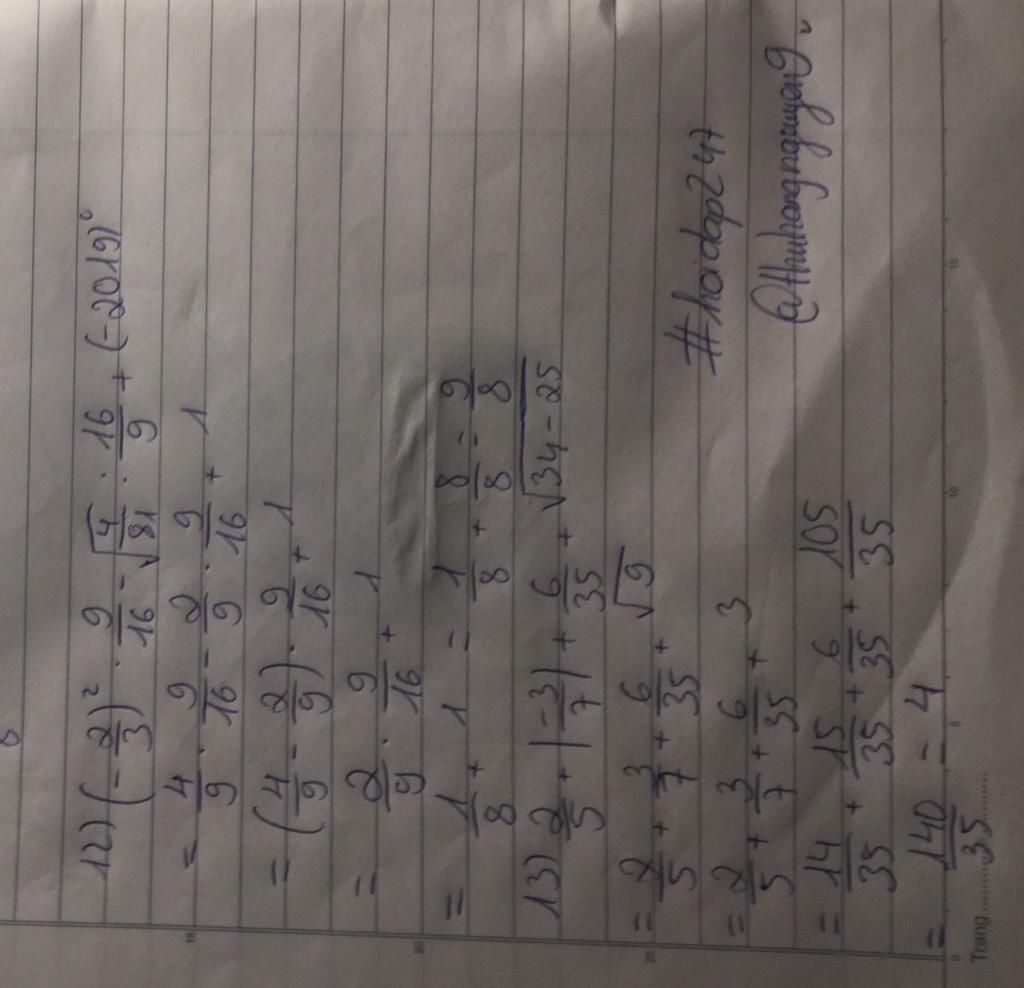 12) (-2/3)² . 9/16 - √4/81 . 16/9 + (-2019)⁰
= 4/9 . 9/16 - 2/9 . 9/16 + 1
= (4/9 - 2/9) . 9/16 + 1
= 2/9 . 9/16 + 1
= 1/8 + 1 = 1/8 + 8/8 = 9/8
13) 2/5 + |-3/7| + 6/35 + √34-25
= 2/5 + 3/7 + 6/35 + √9
= 2/5 + 3/7 + 6/35 + 3
= 14/35 + 15/35 + 6/35 + 105/35
= 140/35 = 4
#hoidap247
@thuhangnguyen9
Trang
15
20
25
0
5
10
15